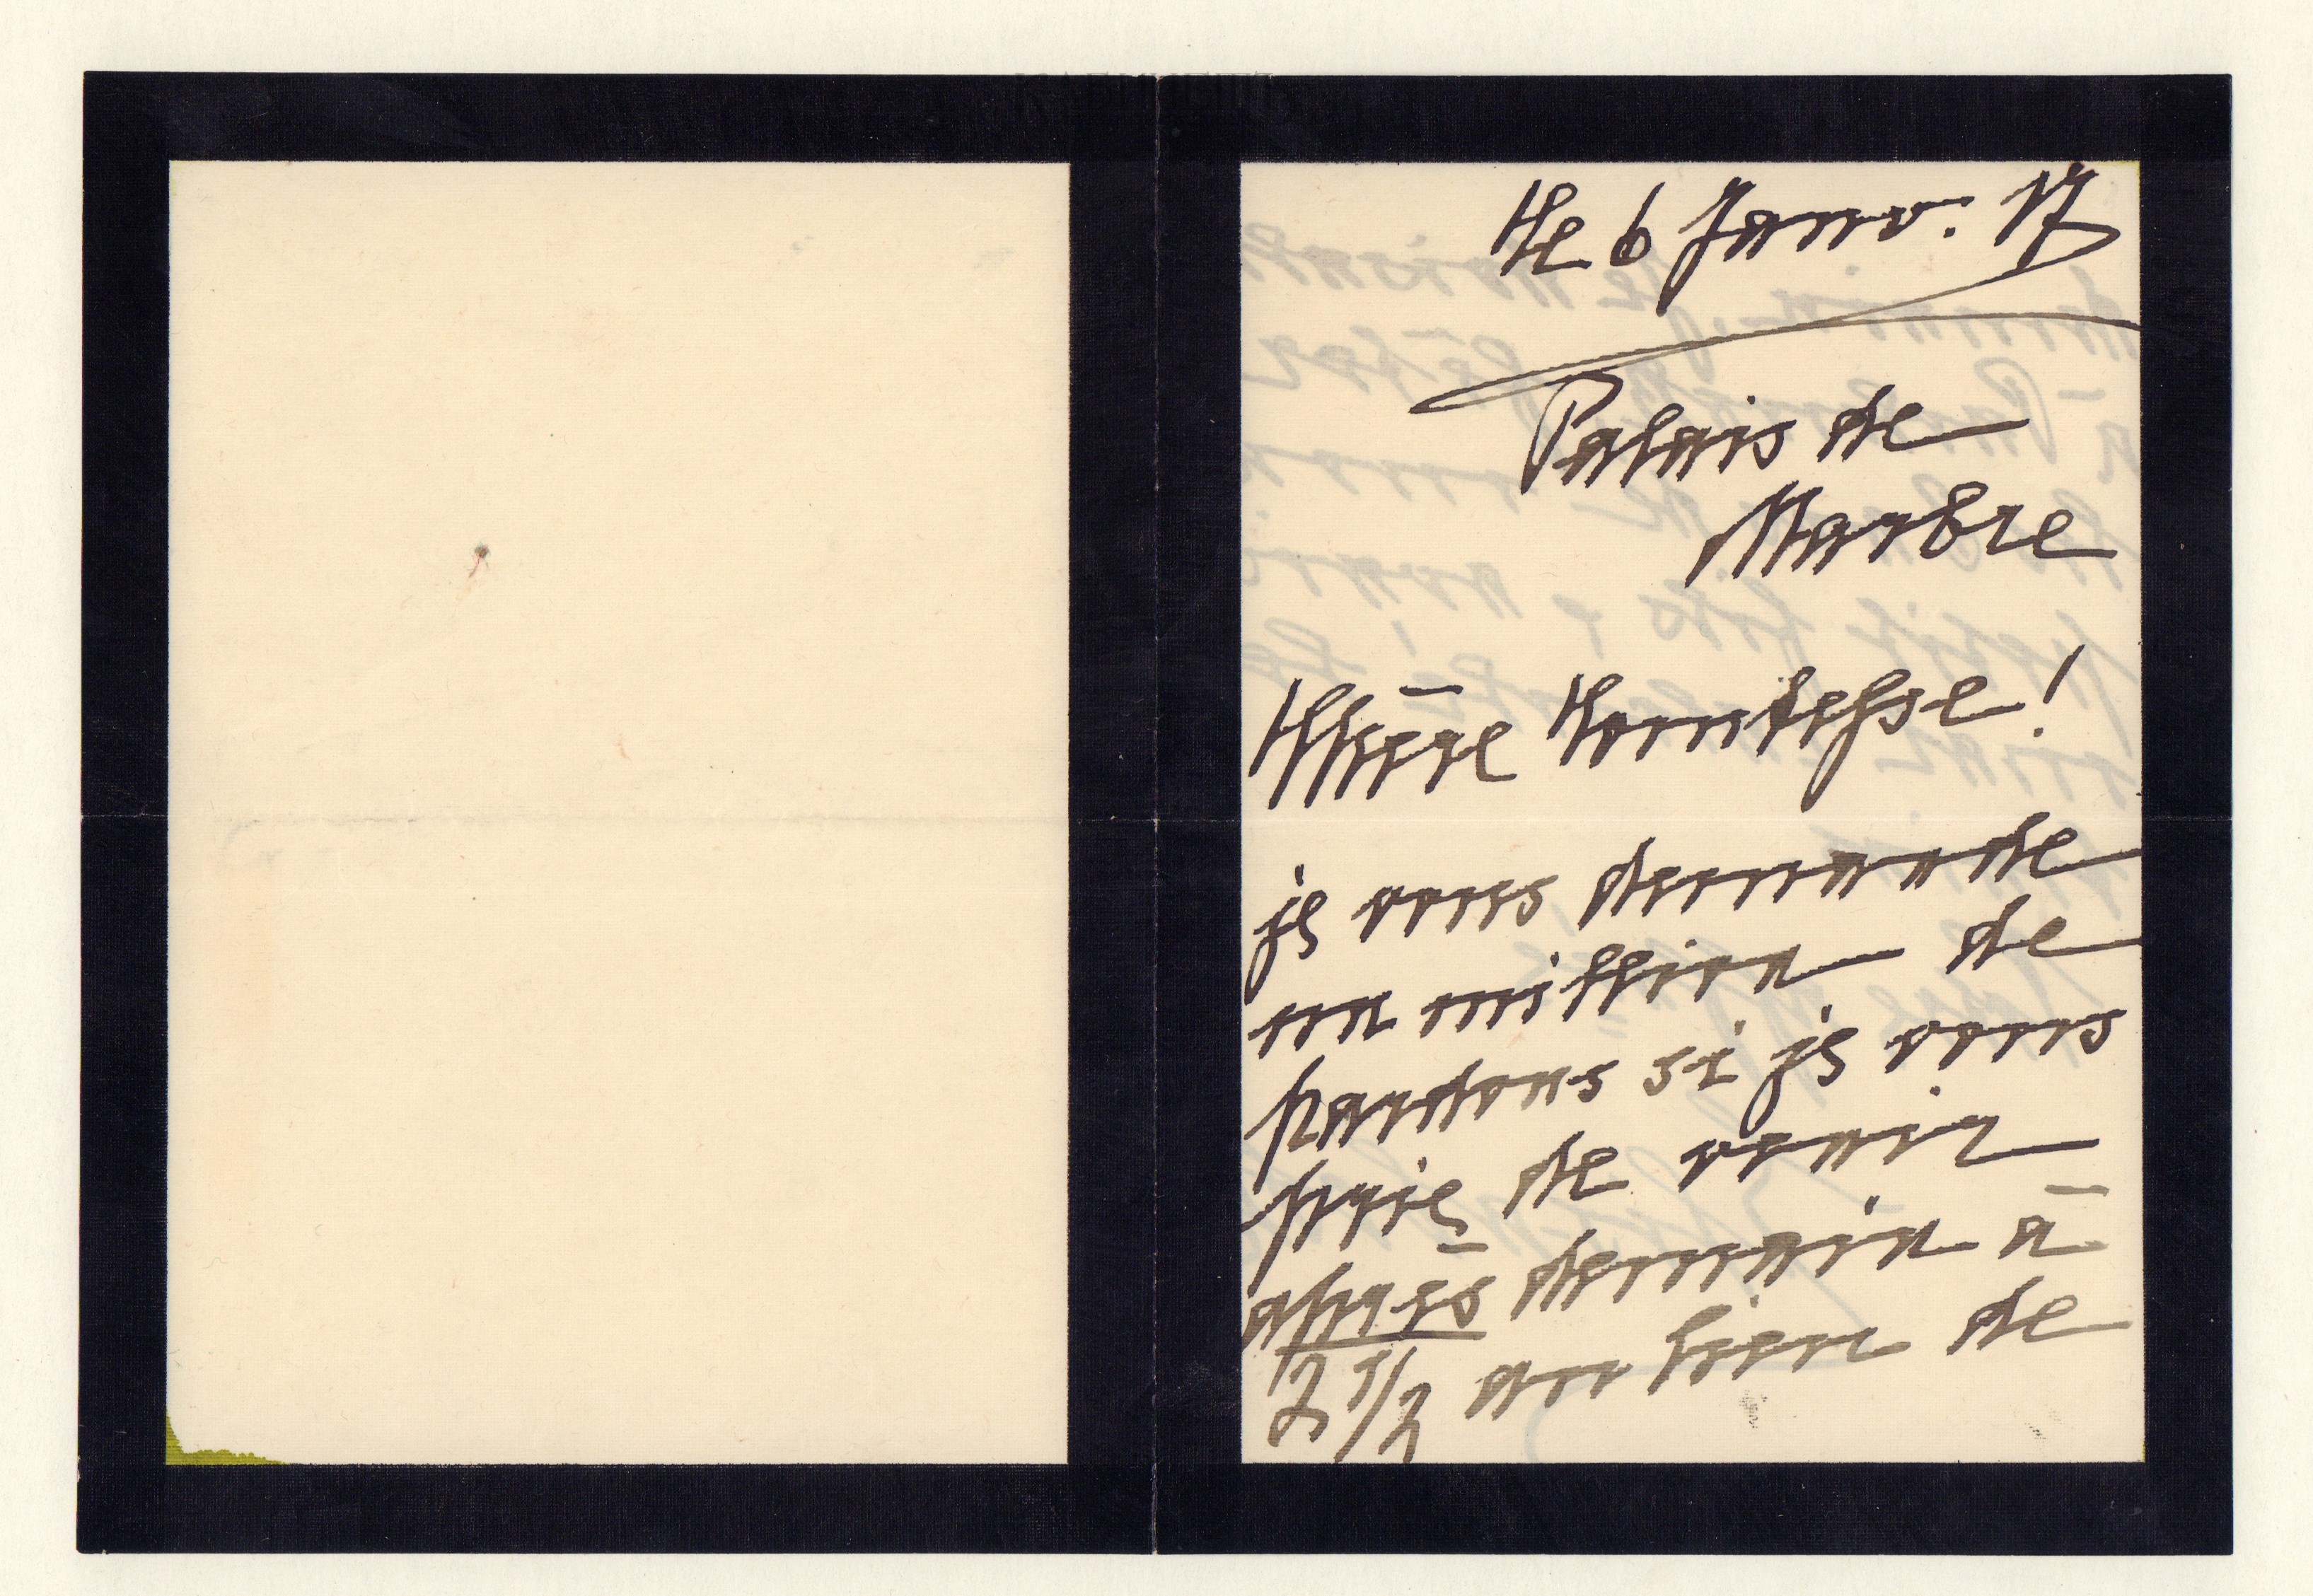 Le 6 Janv. 17
Palais de
Marbre
Chère Comtesse!
je vous demande
un million de
pardons si je vous
prie de venir
après demain à
2 1/2 au lieu de